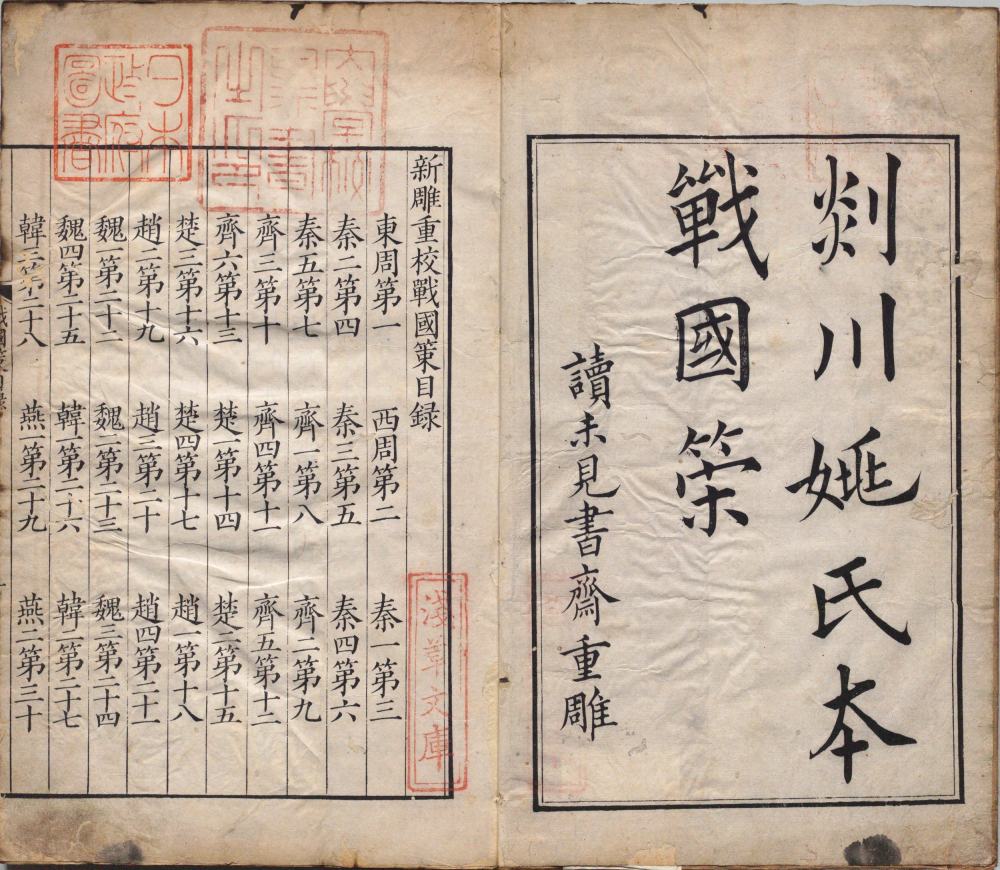 剡川姚氏本
戰國策
讀未見書齋重雕
新雕重校戰國策目録
東周第一 西周第二 秦一第三
秦二第四 秦三第五 秦四第六
秦五第七 齊一第八 齊二第九
齊三第十 齊四第十一 齊五第十二
齊六第十三 楚一第十四 楚二第十五
楚三第十六 楚四第十七 趙一第十八
趙二第十九 趙三第二十 趙四第二十一
魏一第二十二 魏二第二十三 魏三第二十四
魏四第二十五 韓一第二十六 韓二第二十七
韓三第二十八 燕一第二十九 燕二第三十
日本政府圖書
淺草文庫